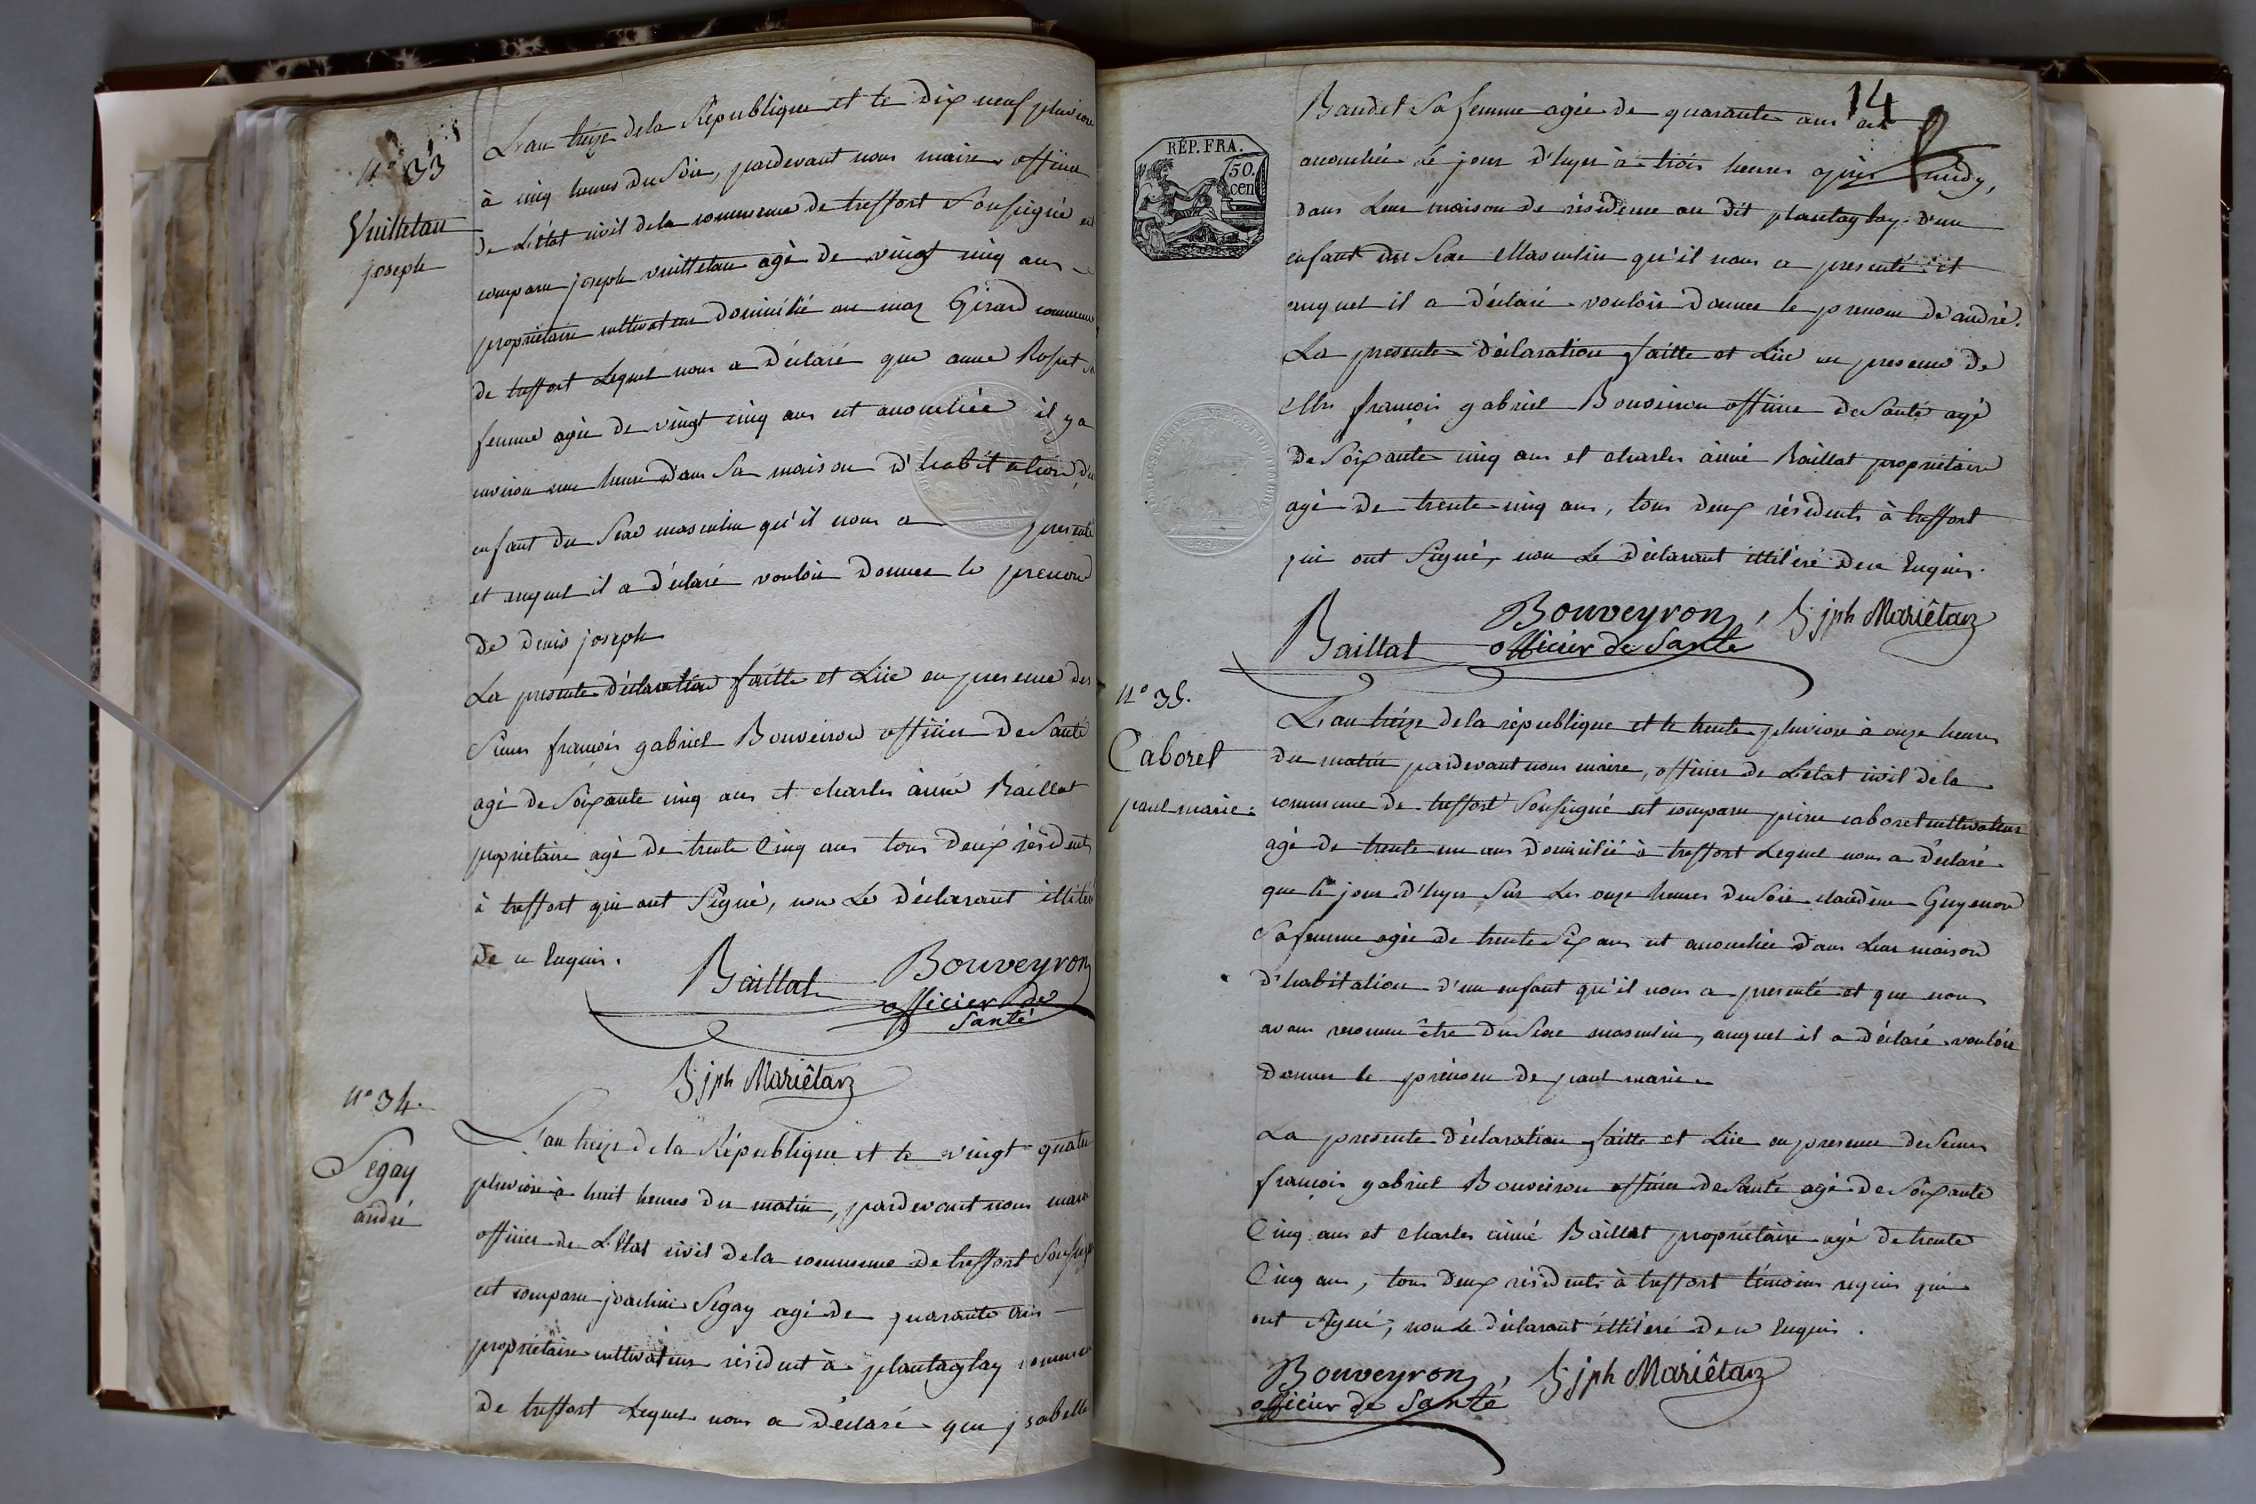 N° 33
Vuilletan
joseph
L'an treize de la République et le dix neuf pluviose
à cinq heures du Soir, pardevant nous maire officier
de L'état civil de la commune de treffort Soussigné est
comparu joseph vuilletan agé de vingt cinq ans
propriétaire cultivateur domicilié au maz Girard commune
de treffort Lequel nous a déclaré que anne Rosset sa
femme agée de vingt cinq ans est accouchée il y a
environ une heure dans Sa maison d'habitation d'un
enfant du Sexe masculin qu'il nous a presenté
et auquel il a déclaré vouloir donner le prenom
de denis joseph
La presente déclaration faitte et Lüe en presence des
Sieurs françois gabriel Bouveiron officier de Santé
agé de Soixante cinq ans et charles aimé Baillat
propriétaire agé de trente Cinq ans tous deux résidents
à treffort qui ont Signé, non Le déclarant illitéré
de ce Enquis.
Baillat Bouveyron
officier de
Santé
Bjph Mariêtan
N° 34.
Segay
andré
L'an treize de la République et le vingt quatre
pluviose à huit heures du matin, pardevant nous maire
officier de L'état civil de la commune de treffort Soussigné
est comparu joachim Segay agé de quarante ans
propriétaire cultivateur résident à plantaglay commune
de treffort Lequel nous a déclaré que jsabelle
14
RÉP. FRA.
50.
cen
Baudet Sa femme agée de quarante ans est
accouchée Le jour d'hyer à trois heures après midy,
dans Leur maison de résidence au dit plantaglay d'un
enfant du Sexe Masculin qu'il nous a presenté et
auquel il a déclaré vouloir donner le prenom de andré.
La presente déclaration faitte et Lüe en presence de
Mrs françois gabriel Bouveiron officier de Santé agé
de Soixante cinq ans et charles aimé Baillat propriétaire
agé de trente cinq ans, tous deux résidents à treffort
qui ont Signé, non Le déclarant illitéré de ce Enquis.
Bouveyron, Bjph Mariêtan
Baillat officier de Santé
N° 35.
Caboret
paul marie.
L'an treize de la république et le trente pluviose à onze heures
du matin pardevant nous maire, officier de L'etat civil de la
commune de treffort Soussigné est comparu pierre caboret cultivateur
agé de trente un ans domicilié à treffort Lequel nous a déclaré
que le jour d'hyer Sur Les onze heures du Soir claudine Guyenon
Sa femme agée de trente Six ans est accouchée dans Leur maison
d'habitation d'un enfant qu'il nous a presenté et que nous
avons reconnu être du Sexe masculin, auquel il a déclaré vouloir
donner le prénom de paul marie.
La presente déclaration faitte et Lüe en presence de Sieurs
françois gabriel Bouveiron officier de Santé agé de Soixante
Cinq ans et charles aimé Baillat propriétaire agé de trente
Cinq ans, tous deux résidents à treffort témoins requis qui
ont Signé, non Le déclarant illitéré de ce Enquis.
Bouveyron, Bjph Mariêtan
officier de Santé